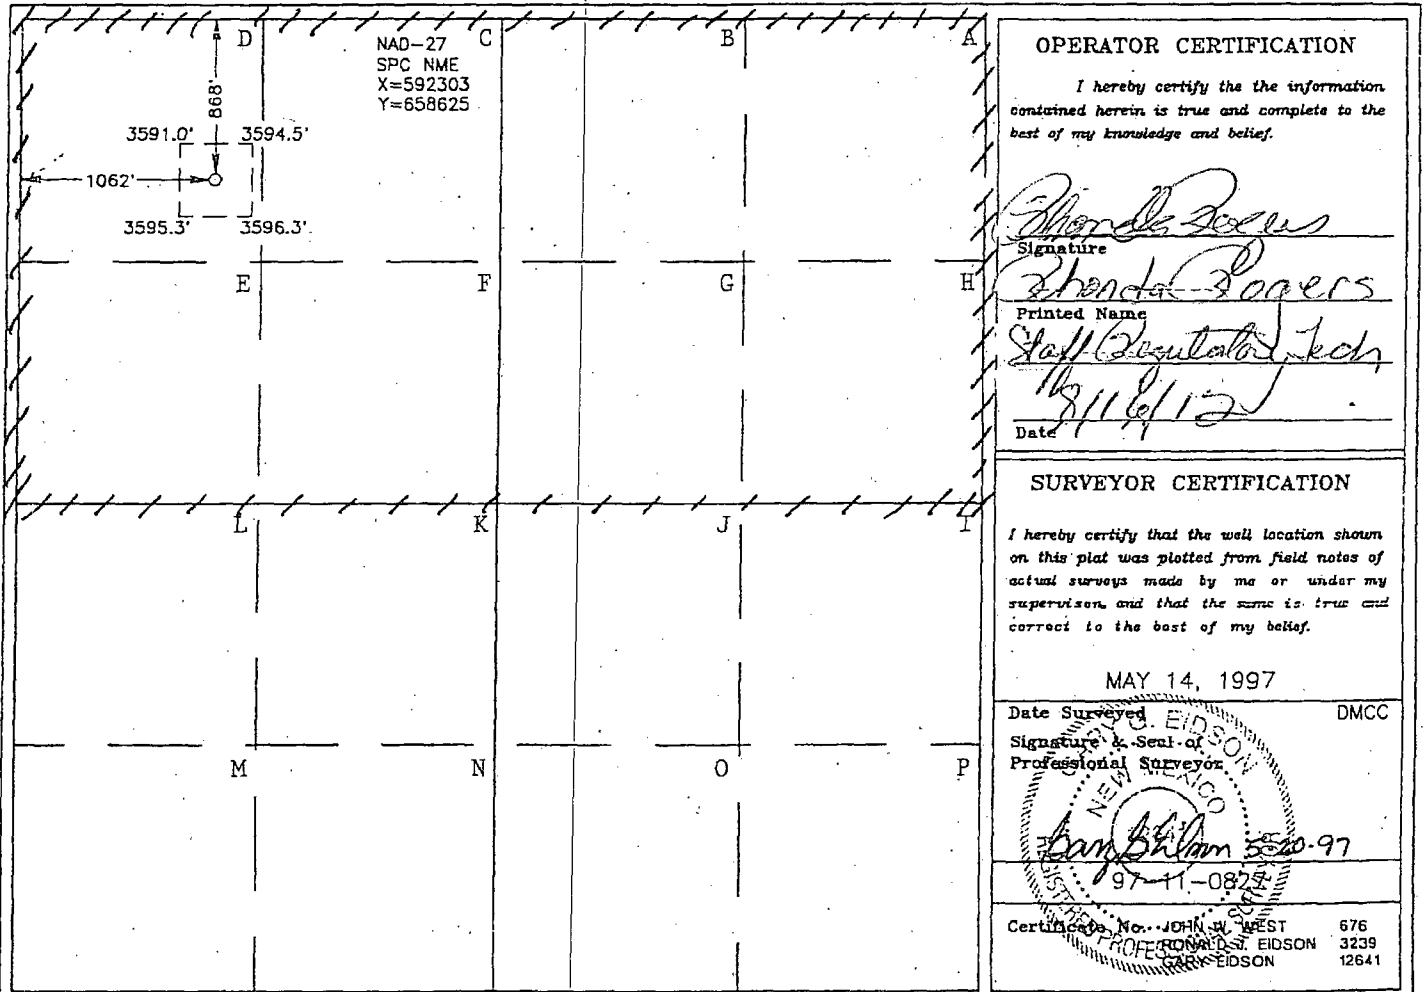 D
C
B
A
NAD-27
SPC NME
X=592303
Y=658625
868'
3591.0' 3594.5'
1062'
3595.3' 3596.3'
E
F
G
H
L
K
J
I
M
N
O
P
OPERATOR CERTIFICATION
I hereby certify the the information
contained herein is true and complete to the
best of my knowledge and belief.
Rhonda Rogers
Signature
Rhonda Rogers
Printed Name
Staff Regulatory Tech
8/16/12
Date
SURVEYOR CERTIFICATION
I hereby certify that the well location shown
on this plat was plotted from field notes of
actual surveys made by me or under my
supervison, and that the same is true and
correct to the best of my belief.
MAY 14, 1997
Date Surveyed DMCC
Signature & Seal of
Professional Surveyor
GARY G. EIDSON
NEW MEXICO
REGISTERED PROFESSIONAL SURVEYOR
5-20-97
Certificate No. JOHN W. WEST 676
RONALD J. EIDSON 3239
GARY EIDSON 12641